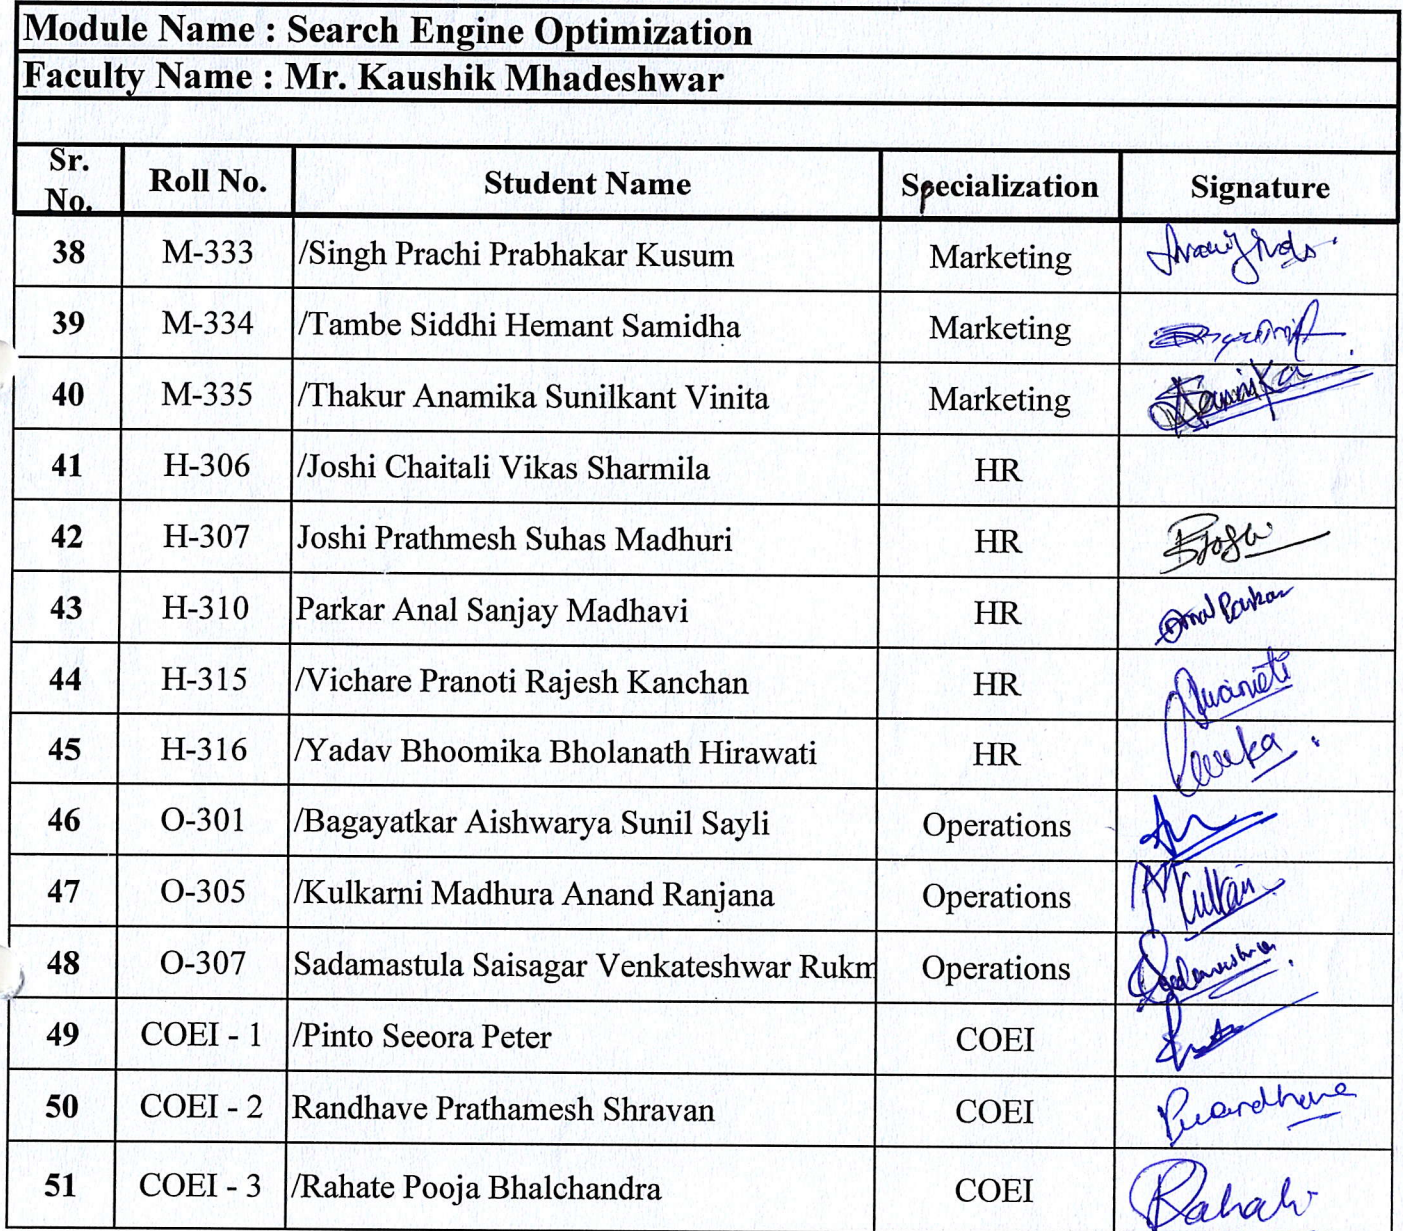 Module Name : Search Engine Optimization
Faculty Name : Mr. Kaushik Mhadeshwar
Sr. No. Roll No. Student Name Specialization Signature
38 M-333 /Singh Prachi Prabhakar Kusum Marketing
39 M-334 /Tambe Siddhi Hemant Samidha Marketing
40 M-335 /Thakur Anamika Sunilkant Vinita Marketing
41 H-306 /Joshi Chaitali Vikas Sharmila HR
42 H-307 Joshi Prathmesh Suhas Madhuri HR
43 H-310 Parkar Anal Sanjay Madhavi HR Anal Parkar
44 H-315 /Vichare Pranoti Rajesh Kanchan HR Pranoti
45 H-316 /Yadav Bhoomika Bholanath Hirawati HR
46 O-301 /Bagayatkar Aishwarya Sunil Sayli Operations
47 O-305 /Kulkarni Madhura Anand Ranjana Operations
48 O-307 Sadamastula Saisagar Venkateshwar Rukm Operations
49 COEI - 1 /Pinto Seeora Peter COEI
50 COEI - 2 Randhave Prathamesh Shravan COEI
51 COEI - 3 /Rahate Pooja Bhalchandra COEI